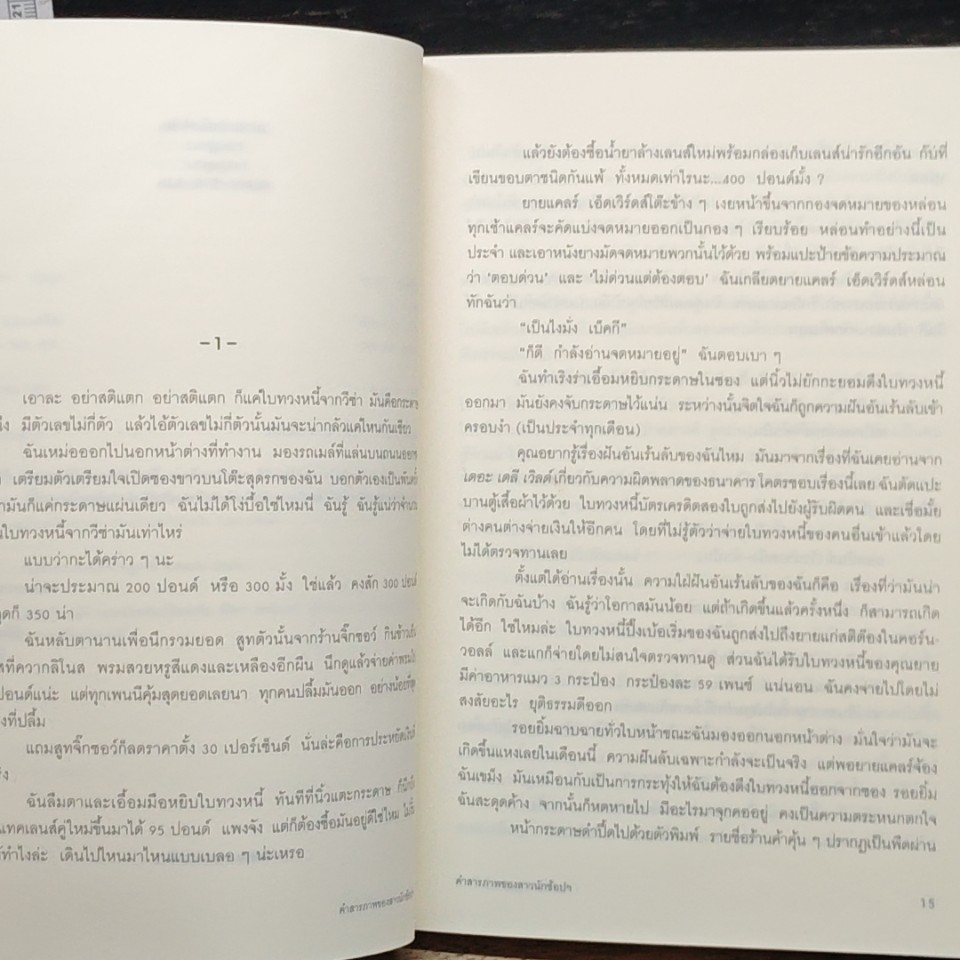 21
–1–
เอาละ อย่าสติแตก อย่าสติแตก ก็แค่ใบทวงหนี้จากวีซ่า มันคือกระดาษ
มีตัวเลขไม่กี่ตัว แล้วไอ้ตัวเลขไม่กี่ตัวนั้นมันจะน่ากลัวแค่ไหนกันเชียว
ฉันเหม่อออกไปนอกหน้าต่างที่ทำงาน มองรถเมล์ที่แล่นบนถนน
เตรียมตัวเตรียมใจเปิดซองขาวบนโต๊ะสุดรกของฉัน บอกตัวเองเป็นพัน
มันก็แค่กระดาษแผ่นเดียว ฉันไม่ได้โง่บื้อใช่ไหมนี่ ฉันรู้ ฉันรู้แน่ว่า
ใบทวงหนี้จากวีซ่ามันเท่าไหร่
แบบว่ากะได้คร่าว ๆ นะ
น่าจะประมาณ 200 ปอนด์ หรือ 300 มั้ง ใช่แล้ว คงสัก 300 ปอนด์
350 น่า
ฉันหลับตานานเพื่อนึกรวมยอด สูทตัวนั้นจากร้านจิ๊กซอว์ กินข้าว
ที่ควากลิโนส พรมสวยหรูสีแดงและเหลืองอีกผืน นึกดูแล้วจ่ายค่าพรม
ปอนด์แน่ะ แต่ทุกเพนนีคุ้มสุดยอดเลยนา ทุกคนปลื้มมันออก อย่างน้อย
ที่ปลื้ม
แถมสูทจิ๊กซอว์ก็ลดราคาตั้ง 30 เปอร์เซ็นต์ นั่นละคือการประหยัด
ฉันลืมตาและเอื้อมมือหยิบใบทวงหนี้ ทันทีที่นิ้วแตะกระดาษ
เลนส์คู่ใหม่ขึ้นมาได้ 95 ปอนด์ แพงจัง แต่ก็ต้องซื้อมันอยู่ดีใช่ไหม
ทำไงล่ะ เดินไปไหนมาไหนแบบเบลอ ๆ น่ะเหรอ
คำสารภาพของสาวนักช้อปฯ
แล้วยังต้องซื้อน้ำยาล้างเลนส์ใหม่พร้อมกล่องเก็บเลนส์น่ารักอีกอัน กับที่
เขียนขอบตาชนิดกันแพ้ ทั้งหมดเท่าไรนะ...400 ปอนด์มั้ง ?
ยายแคลร์ เอ็ดเวิร์ดส์โต๊ะข้าง ๆ เงยหน้าขึ้นจากกองจดหมายของหล่อน
ทุกเช้าแคลร์จะคัดแบ่งจดหมายออกเป็นกอง ๆ เรียบร้อย หล่อนทำอย่างนี้เป็น
ประจำ และเอาหนังยางมัดจดหมายพวกนั้นไว้ด้วย พร้อมแปะป้ายข้อความประมาณ
ว่า ‘ตอบด่วน’ และ ‘ไม่ด่วนแต่ต้องตอบ’ ฉันเกลียดยายแคลร์ เอ็ดเวิร์ดส์หล่อน
ทักฉันว่า
“เป็นไงมั่ง เบ็คกี”
“ก็ดี กำลังอ่านจดหมายอยู่” ฉันตอบเบา ๆ
ฉันทำเริงร่าเอื้อมหยิบกระดาษในซอง แต่นิ้วไม่ยักกะยอมดึงใบทวงหนี้
ออกมา มันยังคงจับกระดาษไว้แน่น ระหว่างนั้นจิตใจฉันก็ถูกความฝันอันเร้นลับเข้า
ครอบงำ (เป็นประจำทุกเดือน)
คุณอยากรู้เรื่องฝันอันเร้นลับของฉันไหม มันมาจากเรื่องที่ฉันเคยอ่านจาก
เดอะ เดลี เวิลด์ เกี่ยวกับความผิดพลาดของธนาคาร โคตรชอบเรื่องนี้เลย ฉันตัดแปะ
บานตู้เสื้อผ้าไว้ด้วย ใบทวงหนี้บัตรเครดิตสองใบถูกส่งไปยังผู้รับผิดคน และเชื่อมั้ย
ต่างคนต่างจ่ายเงินให้อีกคน โดยที่ไม่รู้ตัวว่าจ่ายใบทวงหนี้ของคนอื่นเข้าแล้วโดย
ไม่ได้ตรวจทานเลย
ตั้งแต่ได้อ่านเรื่องนั้น ความใฝ่ฝันอันเร้นลับของฉันก็คือ เรื่องที่ว่ามันน่า
จะเกิดกับฉันบ้าง ฉันรู้ว่าโอกาสมันน้อย แต่ถ้าเกิดขึ้นแล้วครั้งหนึ่ง ก็สามารถเกิด
ได้อีก ใช่ไหมล่ะ ใบทวงหนี้ปึ้งเบ้อเริ่มของฉันถูกส่งไปถึงยายแก่สติต๊องในคอร์น-
วอลล์ และแกก็จ่ายโดยไม่สนใจตรวจทานดู ส่วนฉันได้รับใบทวงหนี้ของคุณยาย
มีค่าอาหารแมว 3 กระป๋อง กระป๋องละ 59 เพนซ์ แน่นอน ฉันคงจ่ายไปโดยไม่
สงสัยอะไร ยุติธรรมดีออก
รอยยิ้มฉาบฉายทั่วใบหน้าขณะฉันมองออกนอกหน้าต่าง มั่นใจว่ามันจะ
เกิดขึ้นแหงเลยในเดือนนี้ ความฝันลับเฉพาะกำลังจะเป็นจริง แต่พอยายแคลร์จ้อง
ฉันเขม็ง มันเหมือนกับเป็นการกระทุ้งให้ฉันต้องดึงใบทวงหนี้ออกจากซอง รอยยิ้ม
ฉันสะดุดค้าง จากนั้นก็หดหายไป มีอะไรมาจุกคออยู่ คงเป็นความตระหนกตกใจ
หน้ากระดาษดำปี๋ไปด้วยตัวพิมพ์ รายชื่อร้านค้าคุ้น ๆ ปรากฏเป็นพืดผ่าน
คำสารภาพของสาวนักช้อปฯ
15